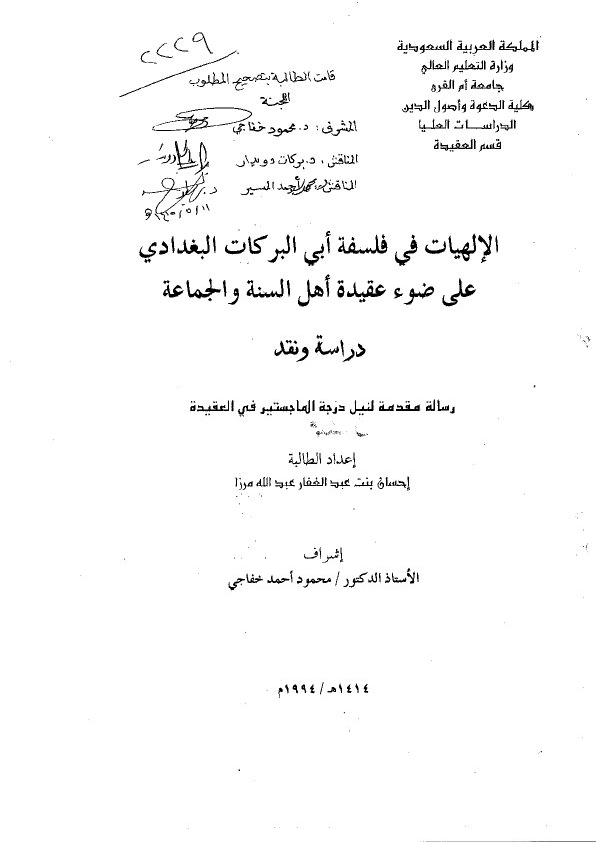 المملكة العربية السعودية
وزارة التعليم العالي
جامعة أم القرى
كلية الدعوة وأصول الدين
الدراسات العليا
قسم العقيدة
٢٢٢٩
قامت الطالبة بتصحيح المطلوب
اللجنة
المشرف : د. محمود خفاجي
المناقش : د. بركات دويدار
المناقش : د. محمد أحمد المسير
الإلهيات في فلسفة أبي البركات البغدادي
على ضوء عقيدة أهل السنة والجماعة
دراسة ونقد
رسالة مقدمة لنيل درجة الماجستير في العقيدة
إعداد الطالبة
إحسان بنت عبد الغفار عبد الله مرزا
إشراف
الأستاذ الدكتور / محمود أحمد خفاجي
١٤١٤هـ/١٩٩٤م